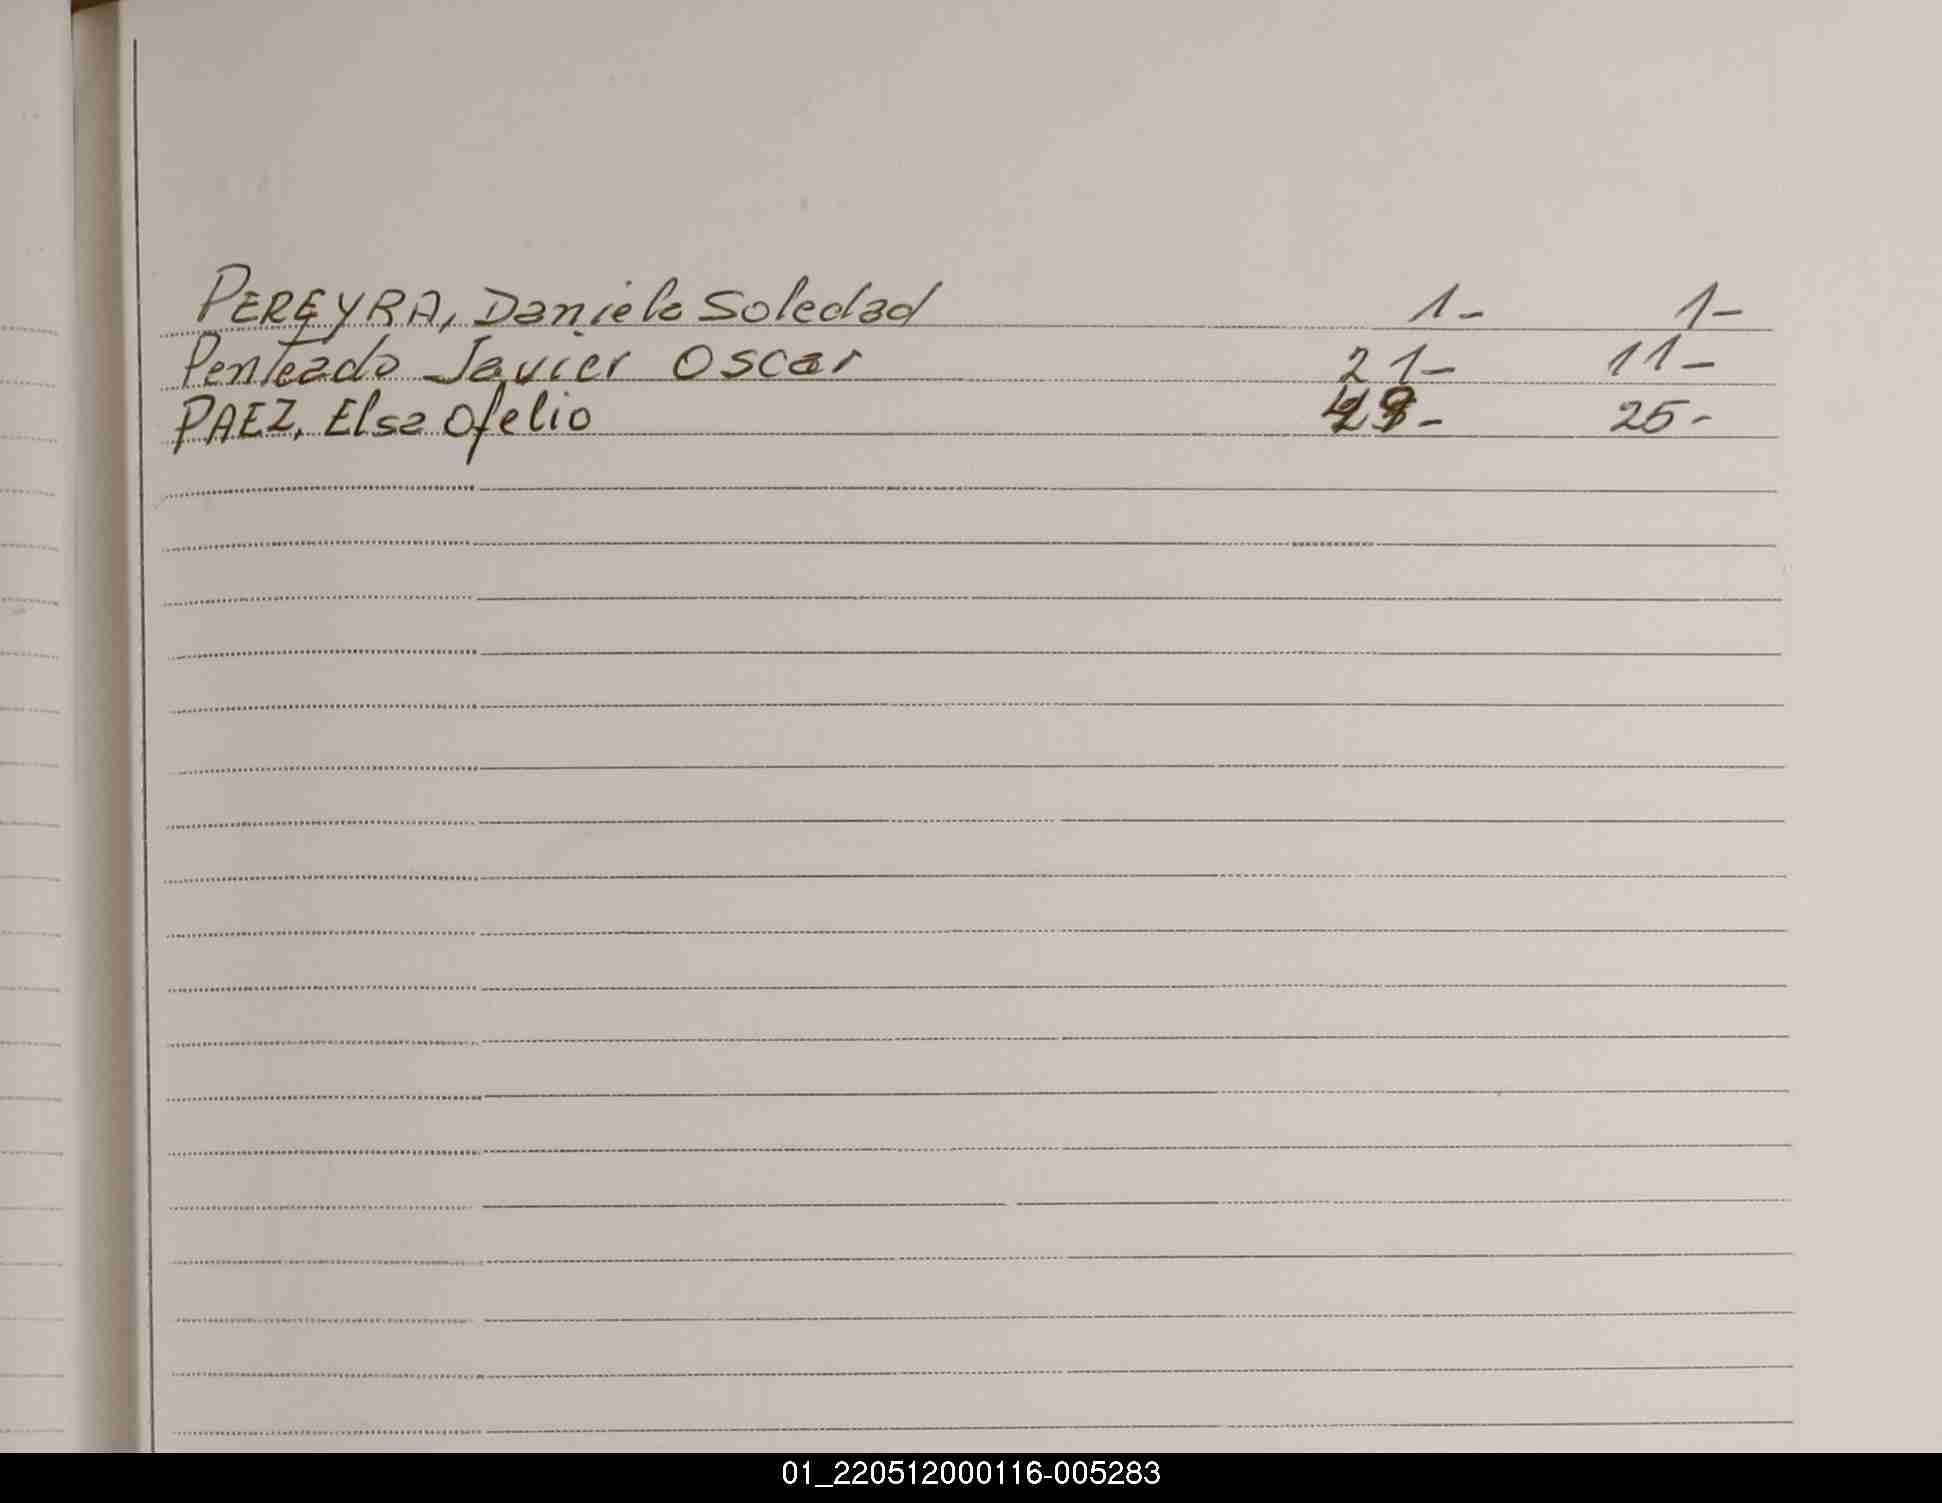 PEREYRA, Daniela Soledad 1- 1-
Penteado Javier Oscar 21- 11-
PAEZ, Elsa Ofelio 25-
01_220512000116-005283